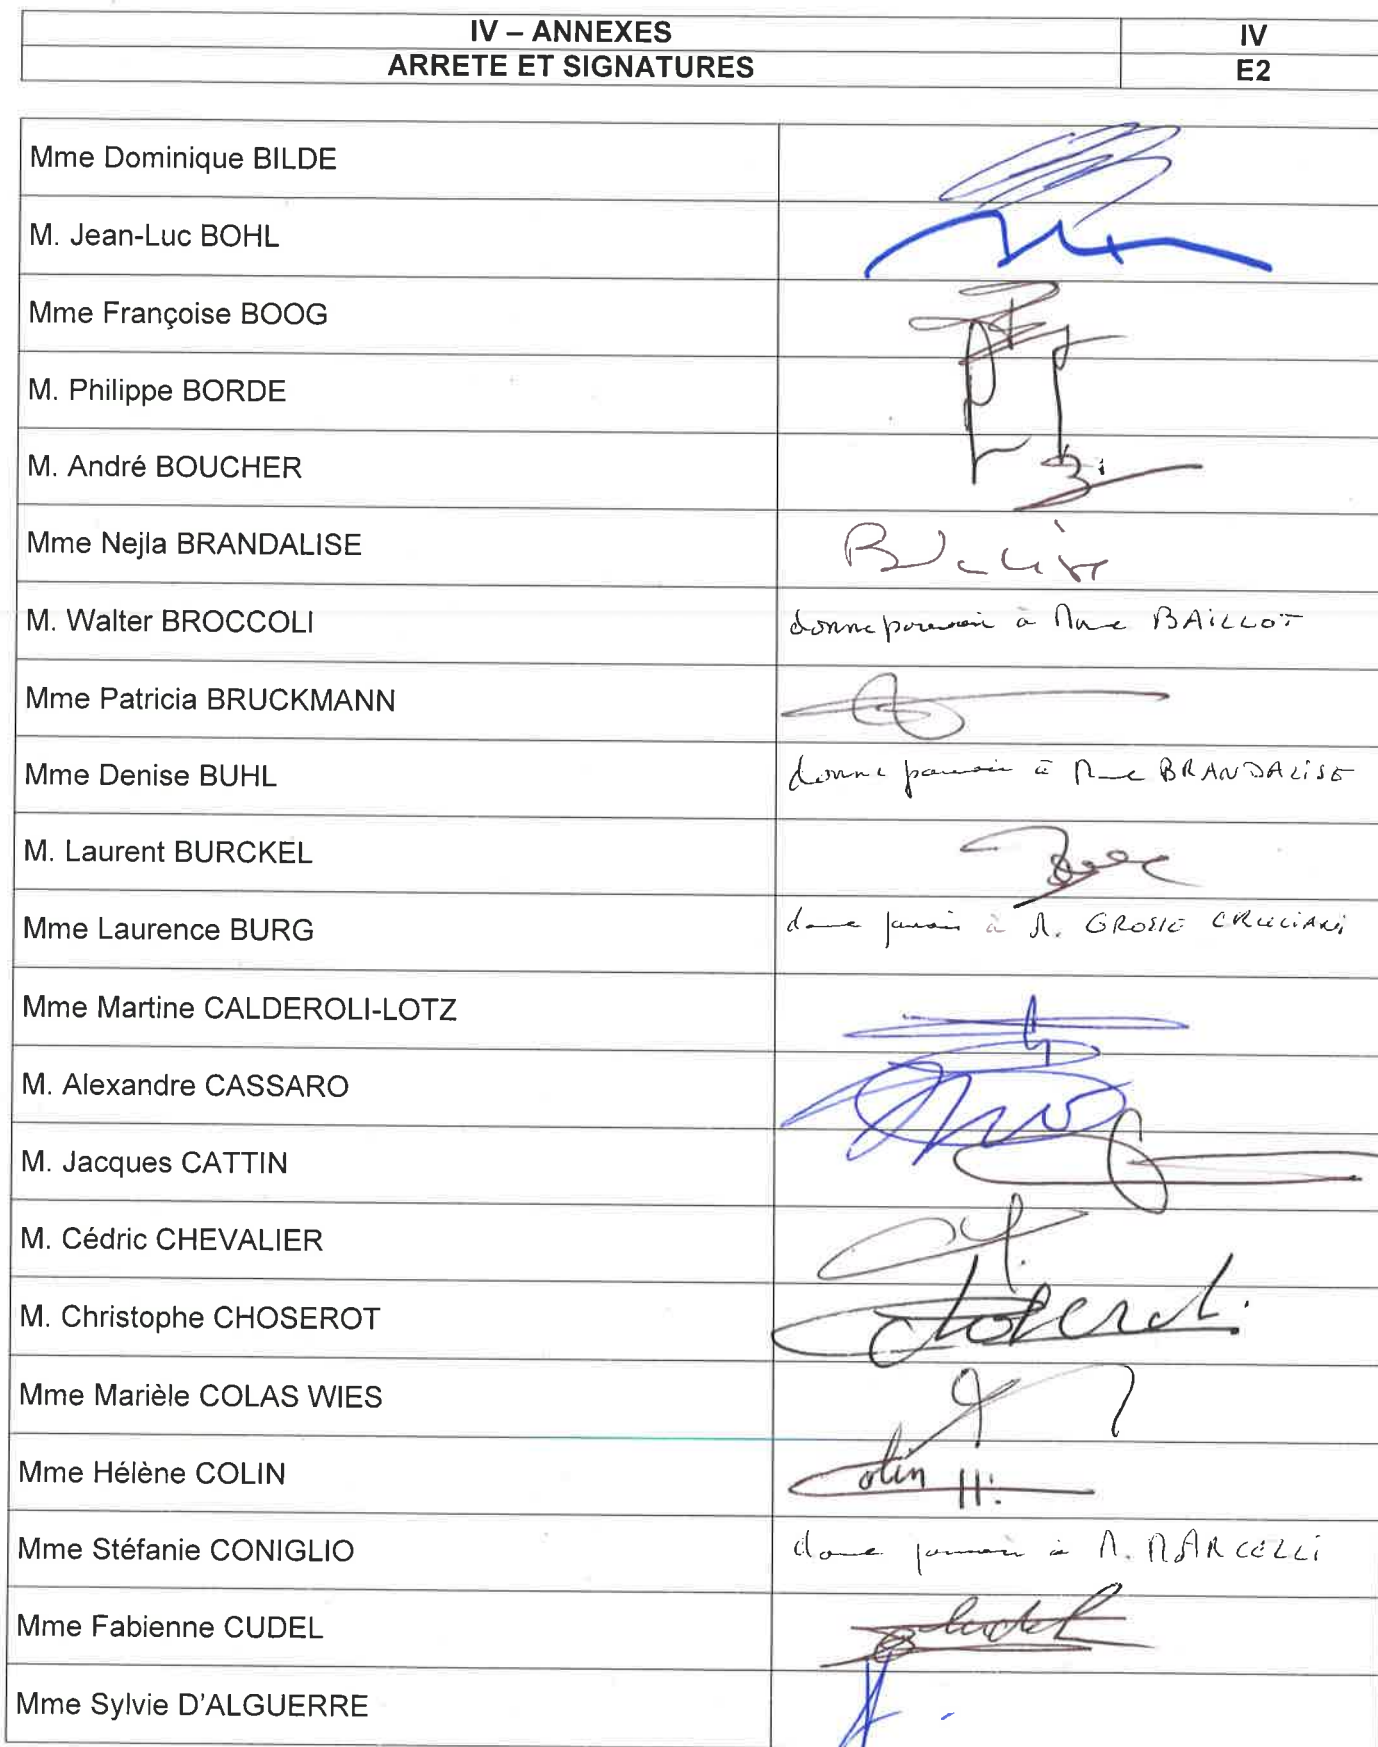 IV – ANNEXES IV
ARRETE ET SIGNATURES E2
Mme Dominique BILDE
M. Jean-Luc BOHL
Mme Françoise BOOG
M. Philippe BORDE
M. André BOUCHER
Mme Nejla BRANDALISE
M. Walter BROCCOLI donne pouvoir à Mme BAILLOT
Mme Patricia BRUCKMANN
Mme Denise BUHL donne pouvoir à Mme BRANDALISE
M. Laurent BURCKEL
Mme Laurence BURG donne pouvoir à M. GROSSE CRUCIANI
Mme Martine CALDEROLI-LOTZ
M. Alexandre CASSARO
M. Jacques CATTIN
M. Cédric CHEVALIER
M. Christophe CHOSEROT
Mme Marièle COLAS WIES
Mme Hélène COLIN Colin H.
Mme Stéfanie CONIGLIO donne pouvoir à M. MARCELLI
Mme Fabienne CUDEL Cudel
Mme Sylvie D'ALGUERRE